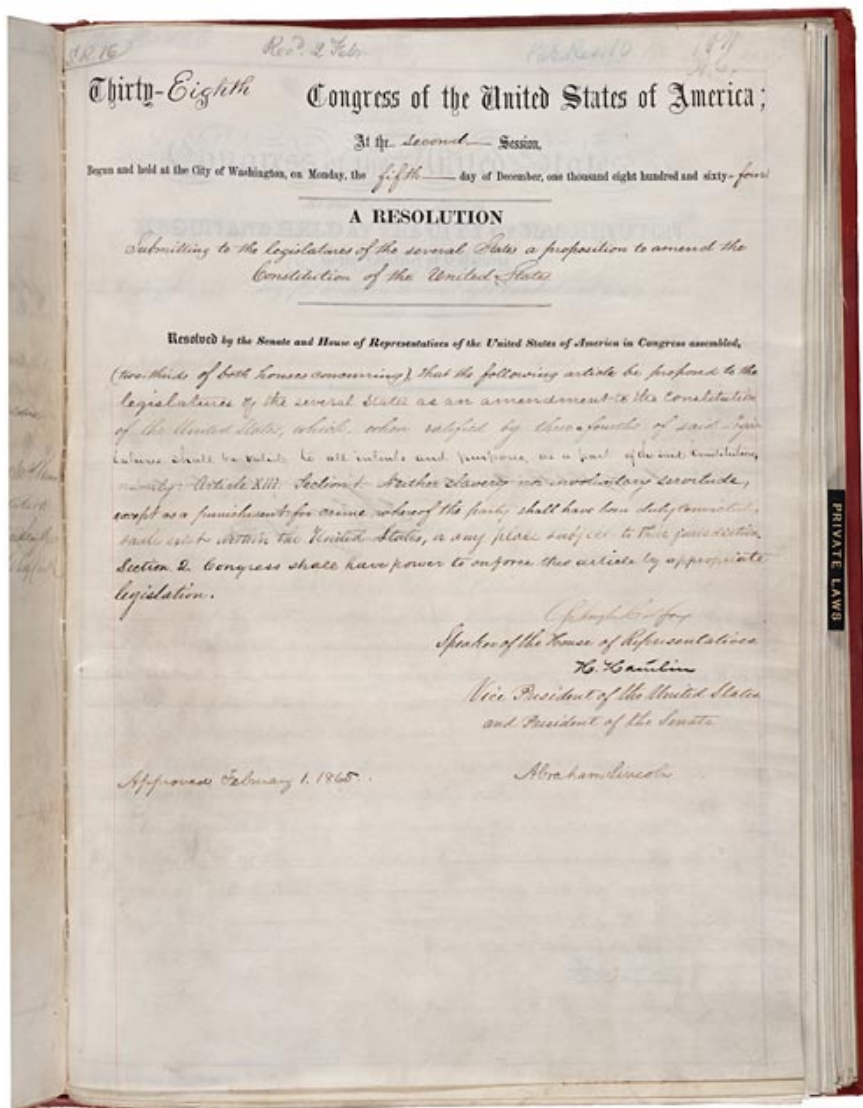 S.R. 16
Rec'd. 2 Feby.
Thirty-Eighth Congress of the United States of America;
At the Second Session,
Begun and held at the City of Washington, on Monday, the fifth day of December, one thousand eight hundred and sixty-four
A RESOLUTION
Submitting to the legislatures of the several States a proposition to amend the
Constitution of the United States
Resolved by the Senate and House of Representatives of the United States of America in Congress assembled,
(two-thirds of both houses concurring), That the following article be proposed to the
legislatures of the several States as an amendment to the Constitution
of the United States, which, when ratified by three-fourths of said Legis-
latures shall be valid, to all intents and purposes, as a part of the said Constitution,
namely: Article XIII. Section 1. Neither slavery nor involuntary servitude,
except as a punishment for crime whereof the party shall have been duly convicted,
shall exist within the United States, or any place subject to their jurisdiction.
Section 2. Congress shall have power to enforce this article by appropriate
legislation.
Schuyler Colfax
Speaker of the House of Representatives
H. Hamlin
Vice President of the United States
and President of the Senate
Approved February 1. 1865.
Abraham Lincoln
PRIVATE LAWS